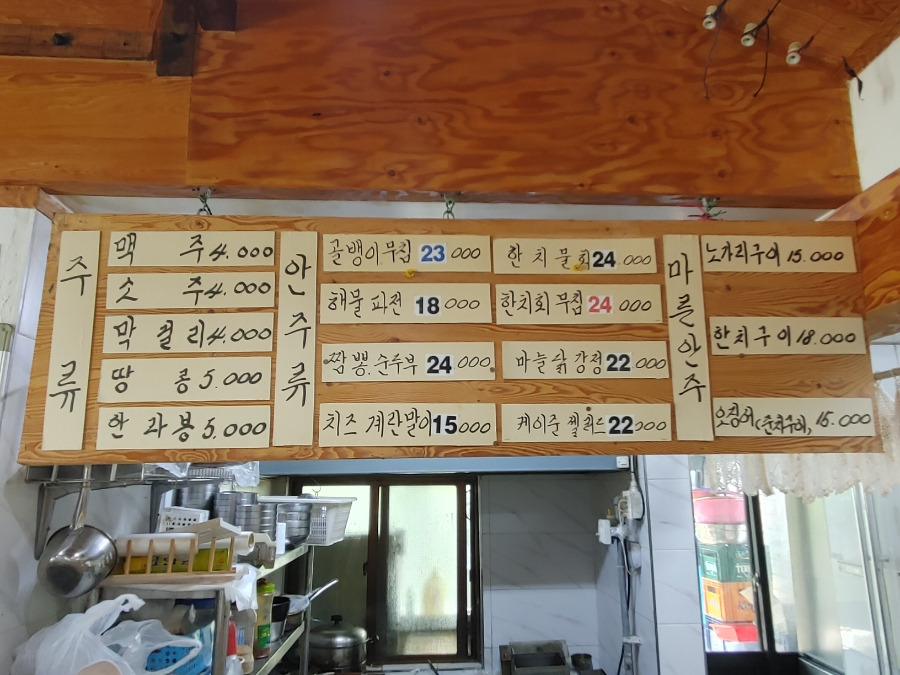 주류
맥주 4.000
소주 4.000
막걸리 4.000
땅콩 5.000
한라봉 5.000
안주류
골뱅이무침 23000
해물파전 18000
짬뽕순두부 24000
치즈계란말이 15000
한치물회 24000
한치회무침 24000
마늘닭강정 22000
케이준샐러드 22000
마른안주
노가리구이 15.000
한치구이 18.000
오징어(준치구이) 15.000